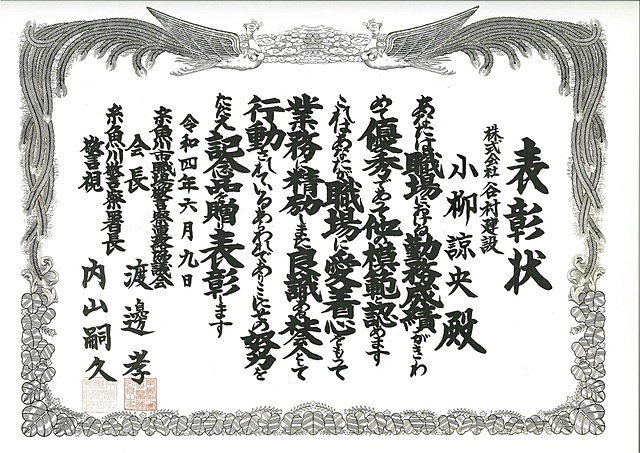 表彰状
株式会社谷村建設
小柳諒央殿
あなたは職場に於ける勤務成績がきわ
めて優秀であって他の模範と認めます
これはあなたが職場に愛着心をもって
業務に精励しまた良識ある社会人として
行動されているあらわれでありここにその努力を
たたえ記念品を贈り表彰します
令和四年六月九日
糸魚川市職場警察連絡協議会
会長 渡邊孝
糸魚川警察署長
警視 内山嗣久